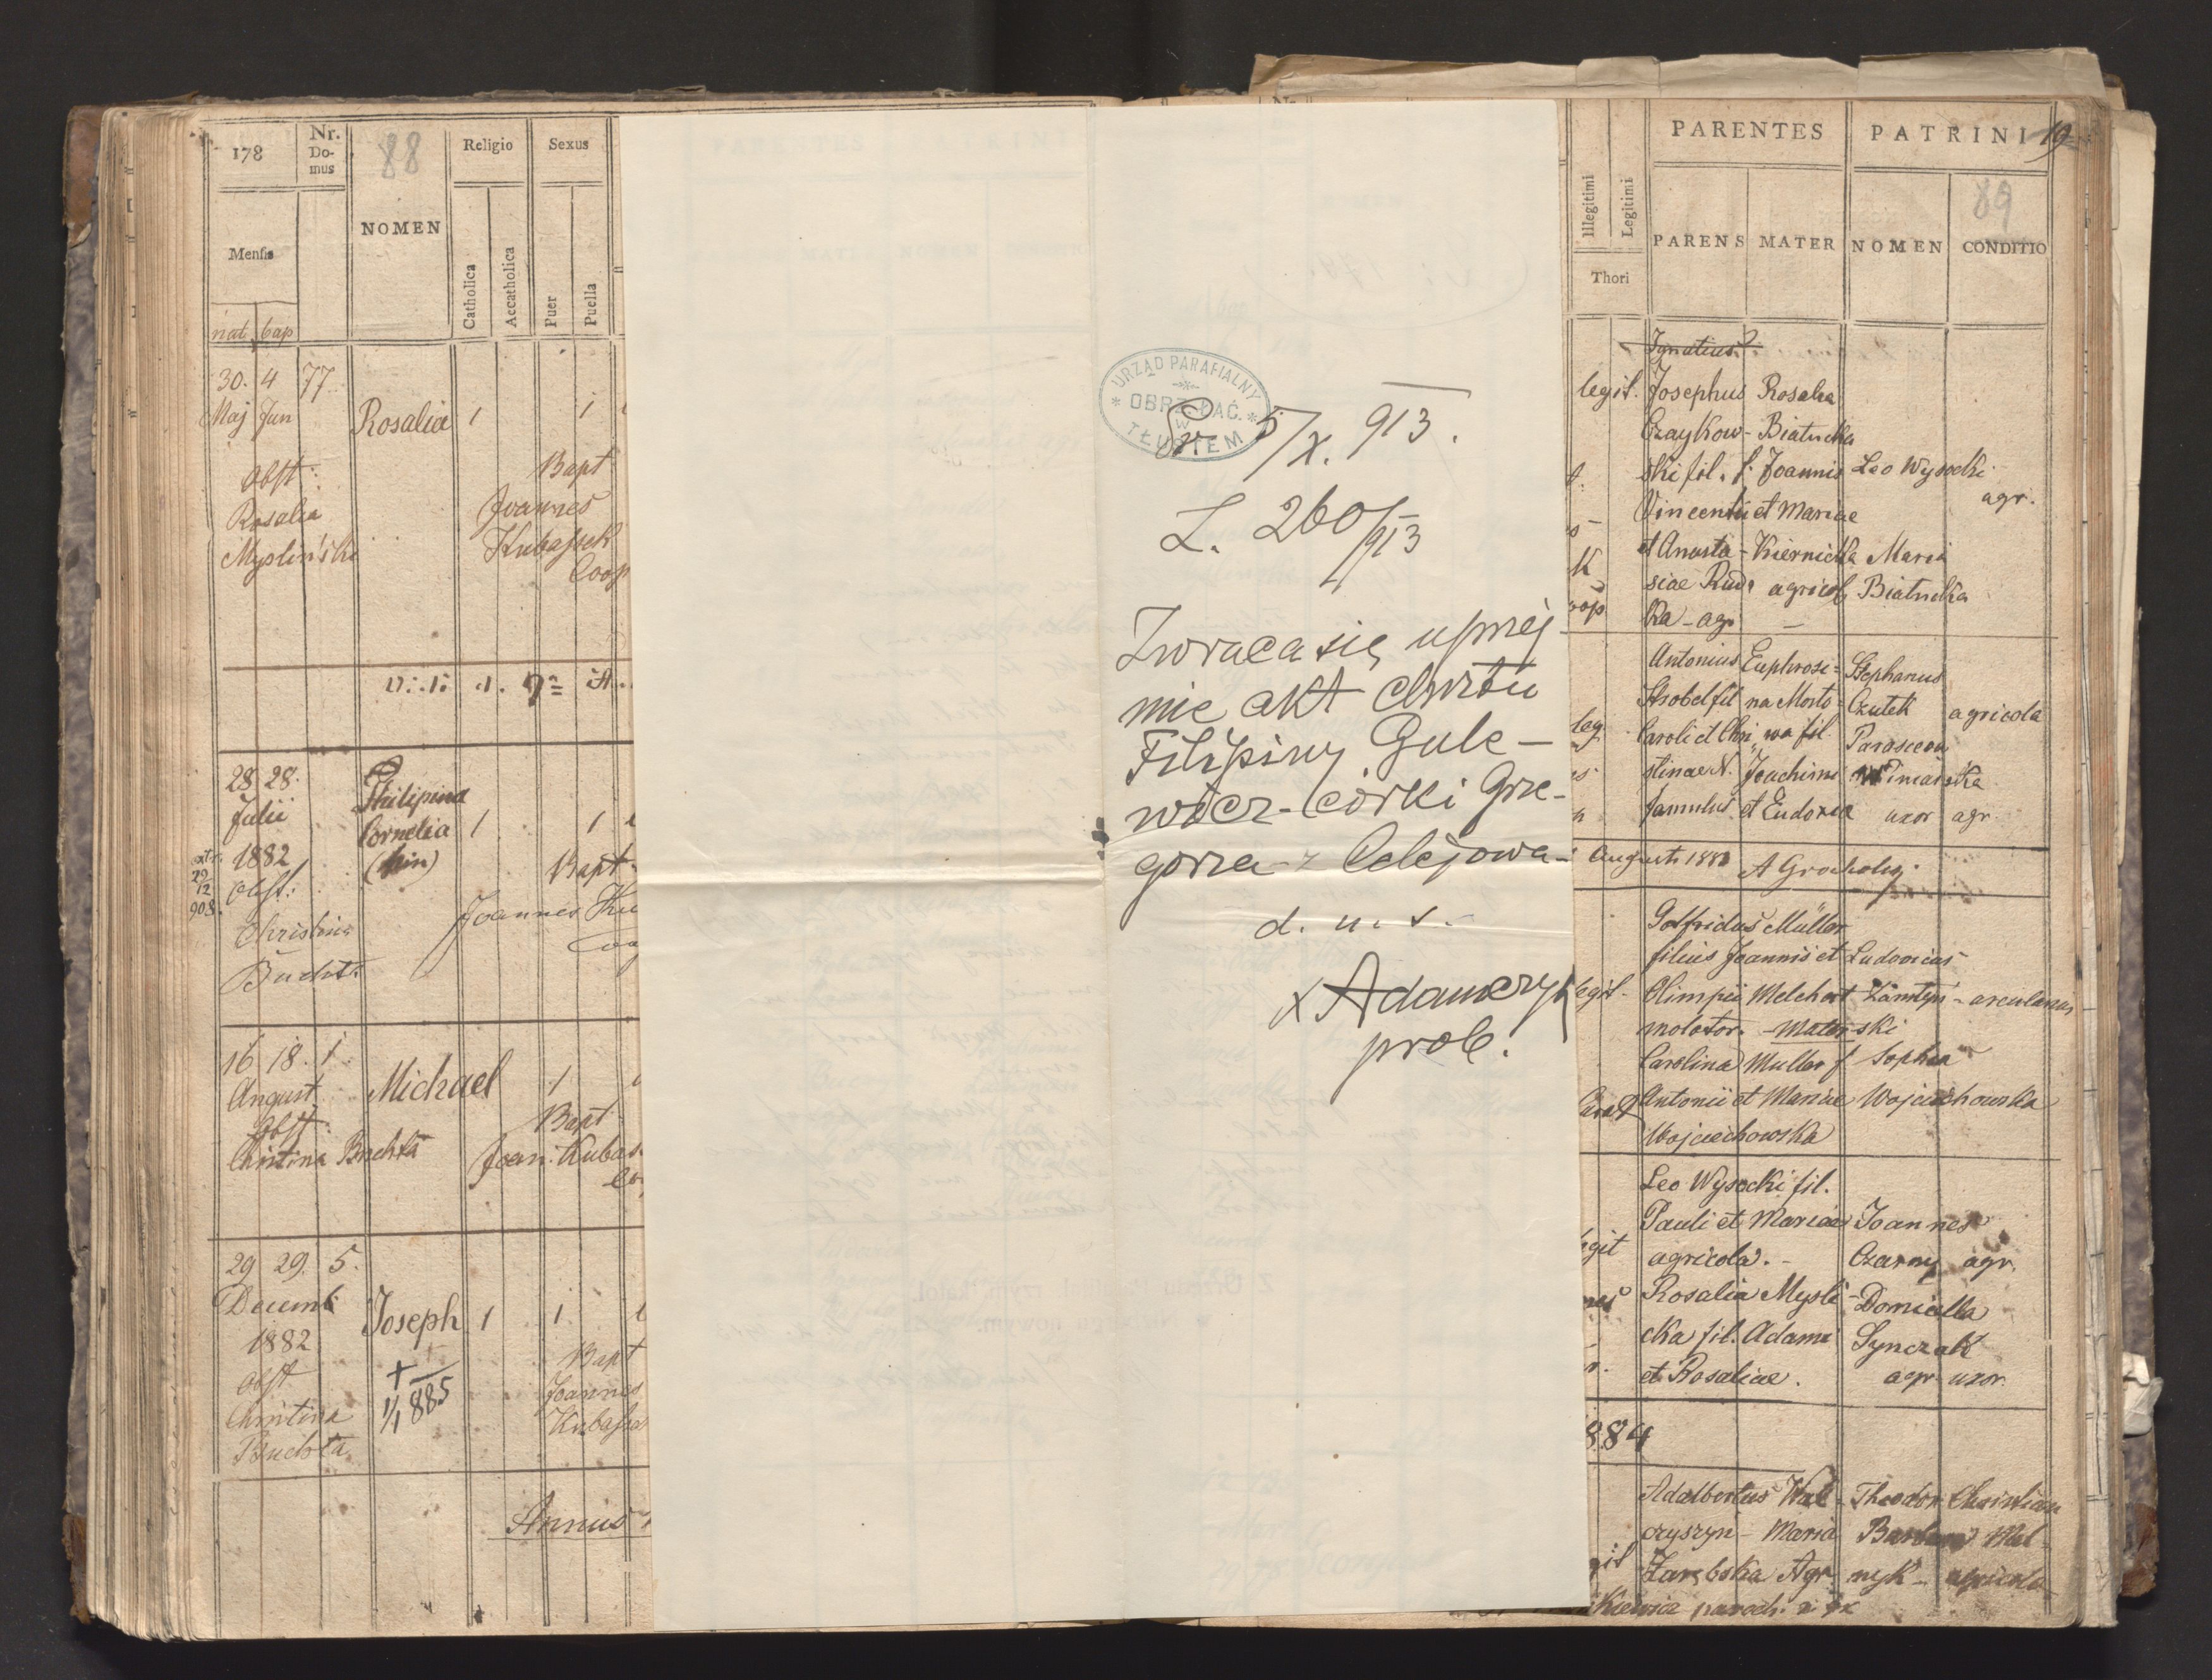 178
Nr. Domus
88
NOMEN
Religio
Sexus
Mensis
Catholica
Accatholica
Puer
Puella
nat. bap
30. 4 77
Maj Jun
Rosalia 1 1
obst:
Rosalia
Bapt
Joannes
Coop
28 28.
Julii
1882
obst:
Christina
Buchta
Philipina
Cornelia 1 1
(bin)
Bapt.
Joannes Ku
29
12
908.
16 18. 1.
August.
Obst:
Christina Buchta
Michael 1
Bapt
Joan. Kubas
29 29. 5.
Decemb
1882
obst
Christina
Buchta
Joseph 1 1
+
1/1 885
Bapt
Joannes
Annus
URZĄD PARAFIALNY
OBRZ. ŁAĆ.
W
TŁUSTEM
5/X. 913.
L. 260/913
Zwraca się uprzej
mie akt chrztu
Filipiny Gule-
wicz - córki Grze-
gorza - z Celejowa -
d. u. s.
X Adamczyk
prob.
Illegitimi
Legitimi
Thori
PARENTES
PATRINI
19
89
PARENS
MATER
NOMEN
CONDITIO
Ignatius
legit. Josephus Rosalia
Czaykow- Białucka
ski fil. f. Joannis Leo Wysocki
agr.
Vincentii et Mariae
et Anasta- Kiernicka Maria
siae Rud agricol Białucka
ka - agr
Antonius Euphrosi= Stephanus
Strobel fil na Mosto- Czutek agricola
leg. Caroli et Chri wa fil. Parascewa
stinae N. Joachimi
famulus et Eudoxia uxor agr
Augusti 188 A Grocholey
Gotfridus Müller
filius Joannis et Ludovicus
legit- Olimpii Melchert
molotor.
Carolina Muller f. Sophia
Antonii et Mariae Wojciechowska
Wojciechowska
Leo Wysocki fil.
Pauli et Mariae Joannes
egit agricola. - Czarny agr.
Rosalia Mysli- Domicella
cka fil. Adami Synczak
et Rosaliae. agr. uxor.
884
Adalbertus Wal- Theodor Christian
czyszyn - Maria Barbara Mel-
Zarębska Agr nyk - agricola
paroch.